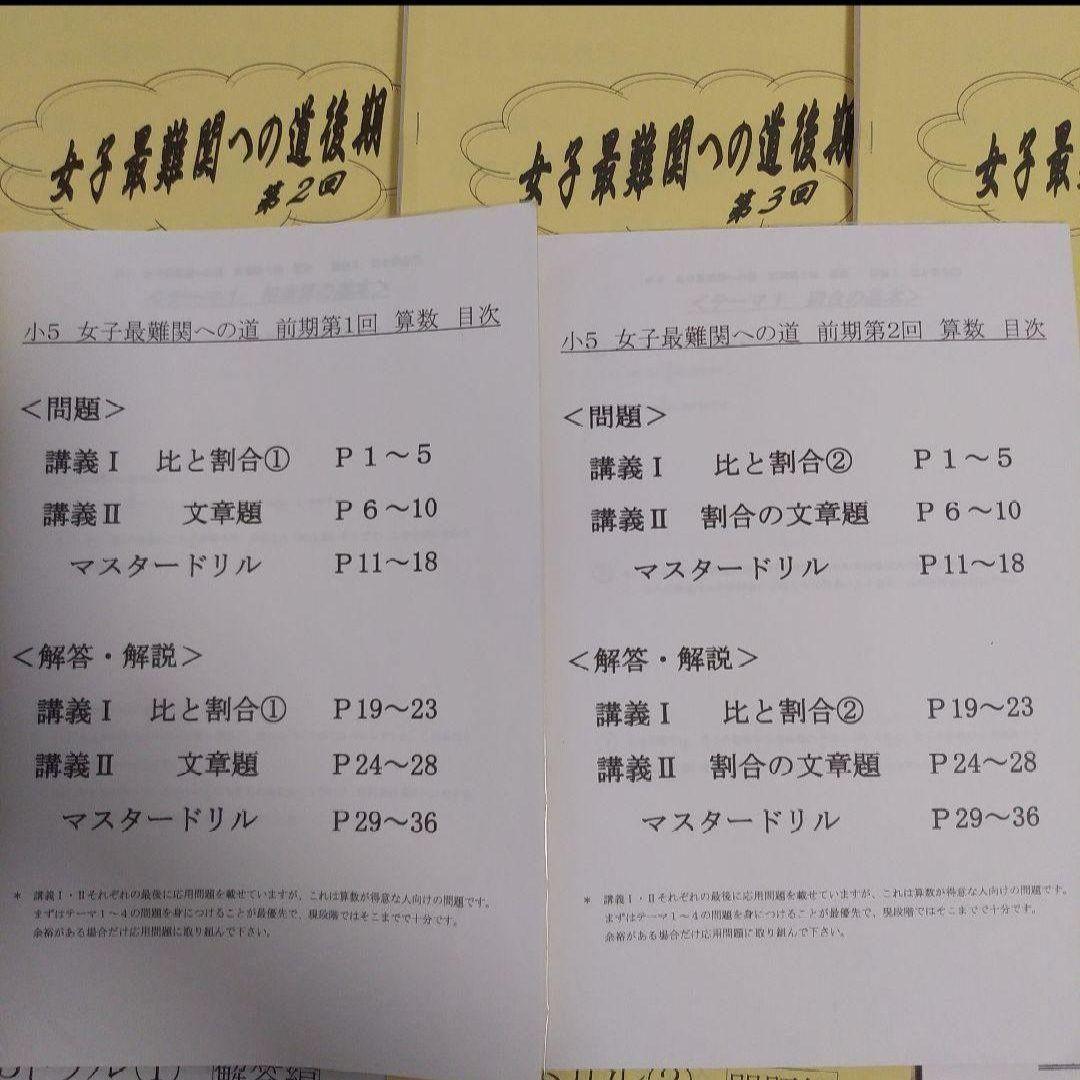 女子最難関への道後期
第2回
女子最難関への道後期
第3回
女子最
小5 女子最難関への道 前期第1回 算数 目次
＜問題＞
講義Ⅰ 比と割合① P1～5
講義Ⅱ 文章題 P6～10
マスタードリル P11～18
＜解答・解説＞
講義Ⅰ 比と割合① P19～23
講義Ⅱ 文章題 P24～28
マスタードリル P29～36
* 講義Ⅰ・Ⅱそれぞれの最後に応用問題を載せていますが、これは算数が得意な人向けの問題です。
まずはテーマ1～4の問題を身につけることが最優先で、現段階ではそこまでで十分です。
余裕がある場合だけ応用問題に取り組んで下さい。
＜テーマ1 割合の基本＞
小5 女子最難関への道 前期第2回 算数 目次
＜問題＞
講義Ⅰ 比と割合② P1～5
講義Ⅱ 割合の文章題 P6～10
マスタードリル P11～18
＜解答・解説＞
講義Ⅰ 比と割合② P19～23
講義Ⅱ 割合の文章題 P24～28
マスタードリル P29～36
* 講義Ⅰ・Ⅱそれぞれの最後に応用問題を載せていますが、これは算数が得意な人向けの問題です。
まずはテーマ1～4の問題を身につけることが最優先で、現段階ではそこまでで十分です。
余裕がある場合だけ応用問題に取り組んで下さい。